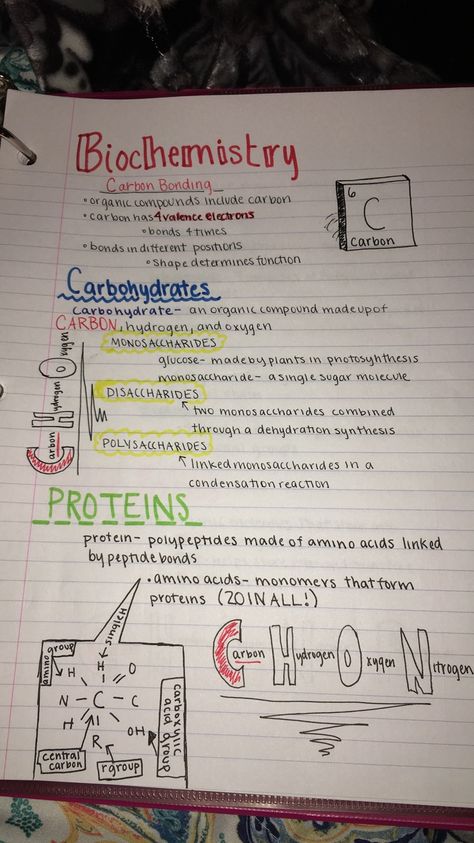 Biochemistry
Carbon Bonding
• organic compounds include carbon
• carbon has 4 valence electrons
• bonds 4 times
• bonds in different positions
• shape determines function
6
C
Carbon
Carbohydrates
carbohydrate- an organic compound made up of
CARBON, hydrogen, and oxygen
MONOSACCHARIDES
glucose- made by plants in photosyhthesis
monosaccharide- a single sugar molecule
DISACCHARIDES
two monosaccharides combined
through a dehydration synthesis
POLYSACCHARIDES
linked monosaccharides in a
condensation reaction
Carbon Hydrogen Oxygen
PROTEINS
protein- polypeptides made of amino acids linked
by peptide bonds
• amino acids- monomers that form
proteins (20 IN ALL!)
Carbon Hydrogen Oxygen Nitrogen
single H
amino group
H H O
N - C - C
H R OH
central carbon
r group
carboxylic acid group